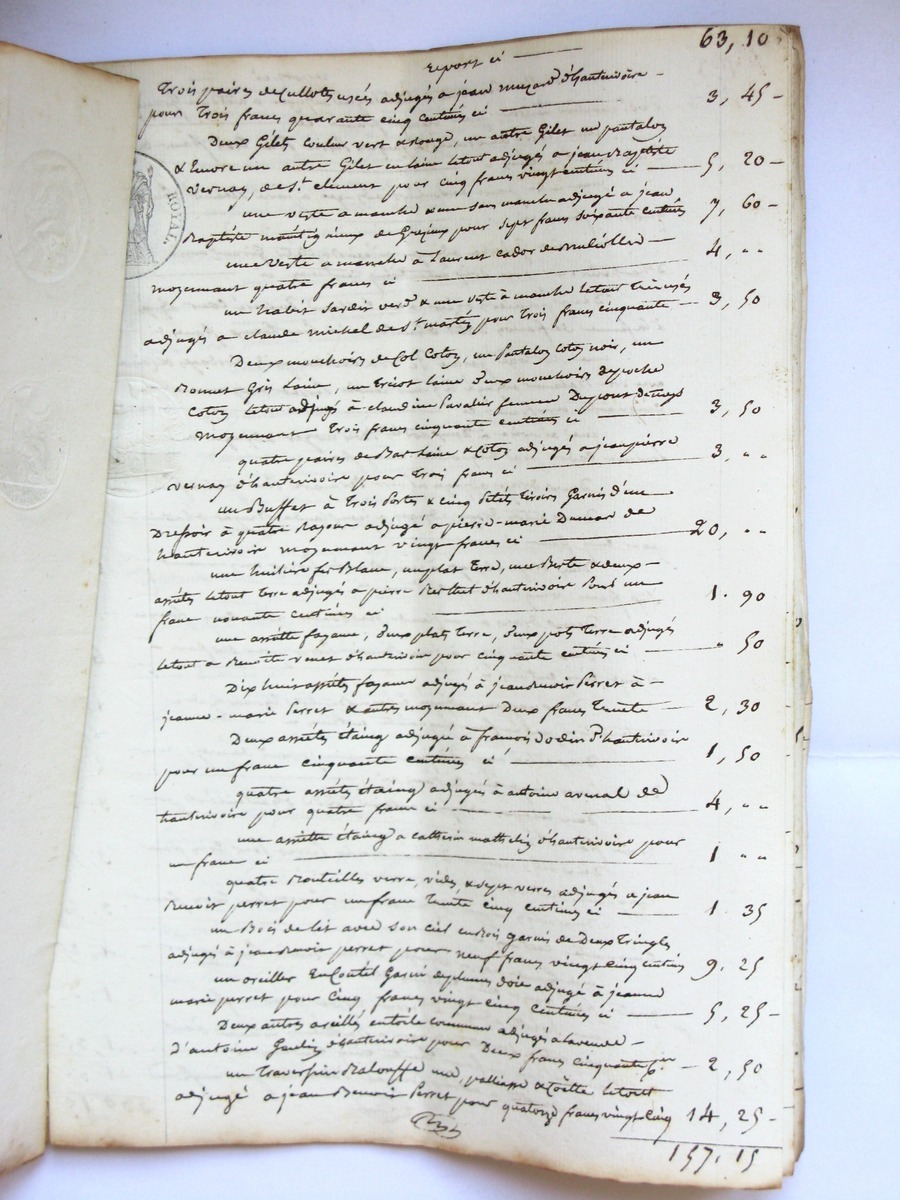 63, 10
report ci
Trois paires de Cullotes usées adjugés a jean d'hauterivoire
pour Trois francs quarante cinq centimes ci 3, 45
Deux Gilets Couleur vert & Rouge, un autre Gilet un pantalon
& Encore un autre Gilet en laine letout adjugés a jean Baptiste
vernay, de St. clement pour cinq francs vingt centimes ci 5, 20
ROYAL.
une veste a manche & une sans manche adjugé a jean
Baptiste de Grezieux pour sept francs soixante centimes 7, 60
une Veste a manche a Laurent cador
moyennant quatre francs ci 4, " "
un habit verd & une veste à manche letout
adjugés a claude michel de St. martin pour Trois francs cinquante 3, 50
Deux mouchoirs de Col Coton, un Pantalon coton noir, un
Bonnet Gris Laine, un Tricot laine deux mouchoirs de poche
Coton letout adjugés à claudine femme Dupont
moyennant Trois francs cinquante centimes ci 3, 50
quatre paires de Bas Laine & Coton adjugés a jean pierre
vernay d'hauterivoire pour Trois francs ci 3, " "
un Buffet à Trois Portes & cinq petits Tiroirs Garnis d'un
Dressoir à quatre Rayons adjugé a pierre-marie Dumas de
hauterivoire moyennant vingt francs ci 20, " "
une huilière fer Blanc, un plat Terre, une Berte & deux
assietes letout Terre adjugés a pierre Berthet d'hauterivoire Pour un
franc nonante centimes ci 1. 90
une assiette fayance, deux plats Terre, deux pots Terre adjugés
letout a Benoite venet d'hauterivoire pour cinquante centimes ci " 50
Dix huit assietes fayance adjugés à jean Benoir Perret à
jeanne-marie Perret & autres moyennant Deux francs Trente 2, 30
Deux assietes étaing adjugé a francois Dodin d'hauterivoire
pour un franc cinquante centimes ci 1, 50
quatre assietes étaing adjugés à antoine de
hauterivoire pour quatre francs ci 4, " "
une assiette étaing a catherin d'hauterivoire pour
un franc ci 1 " "
quatre Bouteilles verre, vides, & sept verres adjugés a jean
Benoit perret pour un franc Trente cinq centimes ci 1. 35
un Bois de lit avec son ciel en Bois garni de Deux Tringles
adjugés à jean Benoir perret pour neuf francs vingt cinq centimes 9. 25
un oreiller En Coutil Garni de plumes d'oie adjugé à jeanne
marie perret pour Cinq francs vingt cinq Centimes ci 5, 25
Deux autres oreillés en toile commune adjugés a la veuve
d'antoine d'hauterivoire pour Deux francs cinquante 2, 50
un Traversin Balouffe une palliasse & Coëtte letout
adjugé a jean Benoir Perret pour quatorze francs vingt cinq 14, 25
157. 15